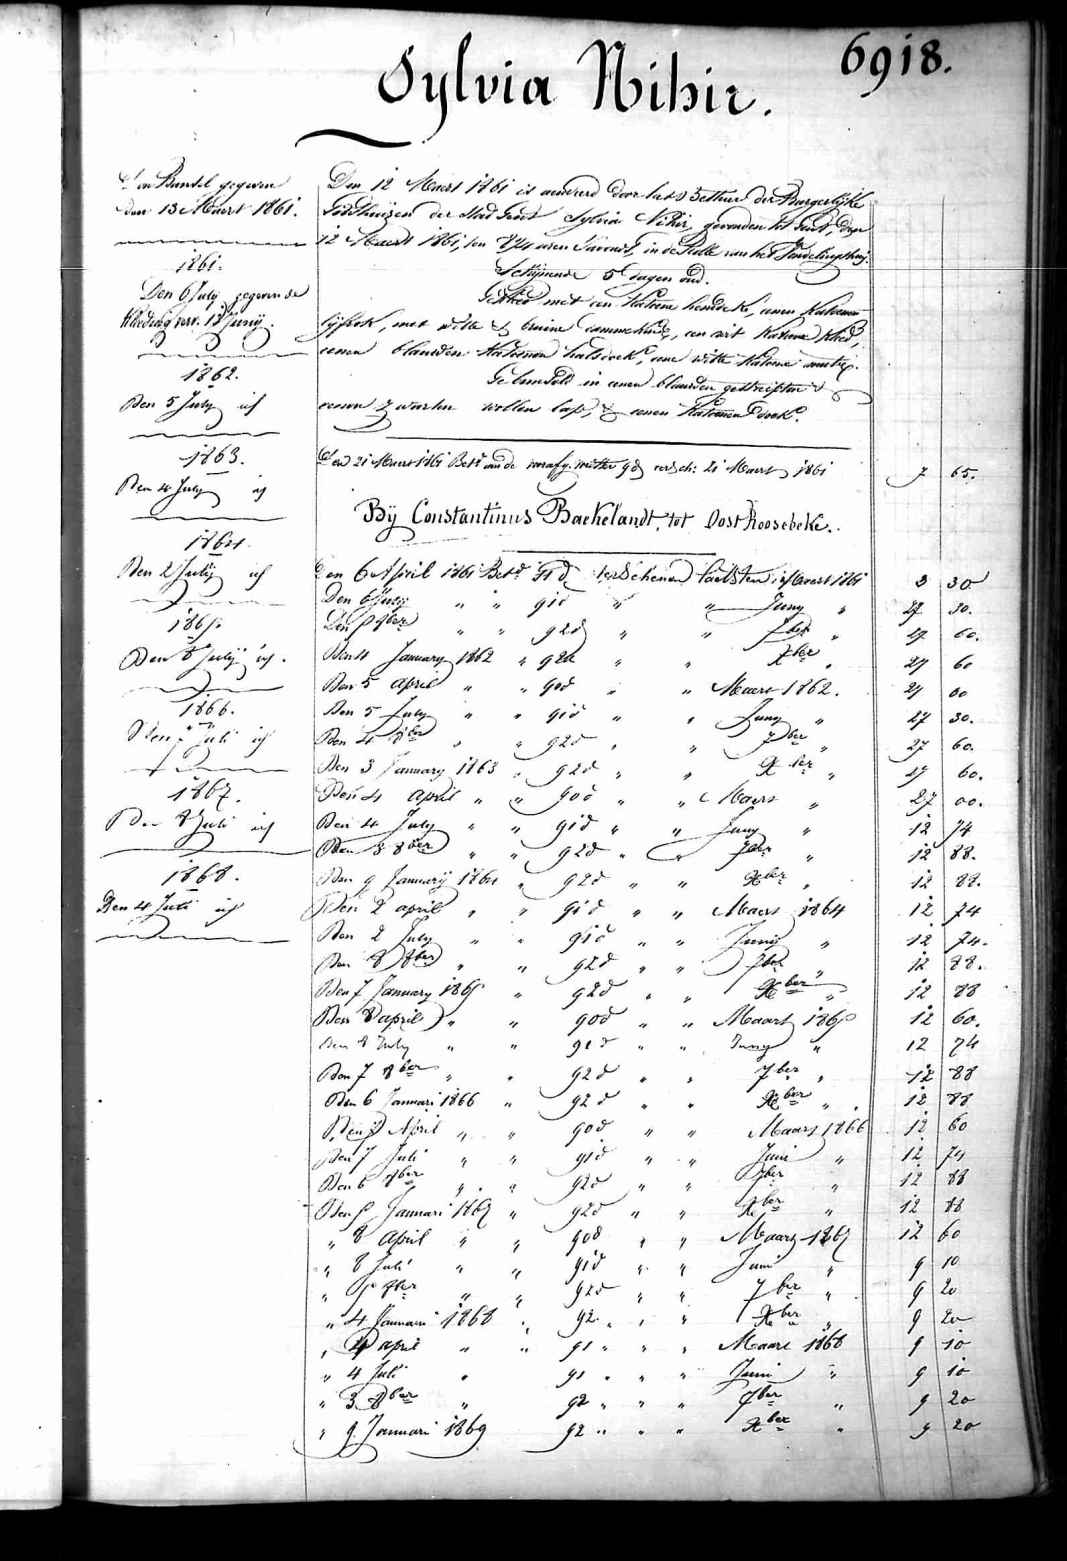 6918.
Sylvia Nihir.
Den Bundel gegeven
den 13 Maert 1861.
1861.
Den 6 July gegeven de
kleeding verv. 13 Juny.
1862.
Den 5 July id
1863.
Den 4 July id
1864.
Den 2 July id
1865.
Den 8 July id.
1866.
Den 7 Juli id
1867.
Den 8 Juli id
1868.
Den 4 Juli id
Den 12 Maert 1861 is aenveerd door het Bestuur der Burgerlijke
Godshuizen der Stad Gent Sylvia Nihir, gevonden tot Gent, den
12 Maert 1861, ten 8 3/4 uren s'avonds, in de Rolle van het Vondelingshuis.
Schijnende 5 dagen oud.
Gekleed met een Katoene hemdeke, eenen Katoenen
lijfrok, met witte & bruine, een wit Katoene kleed,
eenen blauwen Katoenen halsdoek, eene witte Katoene mutse.
Gebunseld in eenen blauwen gestreepten &
eenen zwarten wollen lap, & eenen Katoenen doek.
Den 21 Maert 1861 Betd aen de voorafg. minne 9 d versch: 21 Maert 1861 7 65.
By Constantinus Baekelandt, tot Oost Roosebeke.
Den 6 April 1861 Betd 11 d verschenen laetsten Maert 1861 3 30
Den 6 July " " 91 d " " Juny " 27 30.
Den 5 8ber " " 92 d " " 7ber " 27 60.
Den 4 January 1862 " 92 d " " Xber " 27 60
Den 5 April " " 90 d " " Maert 1862. 27 00
Den 5 July " " 91 d " " Juny " 27 30.
Den 4 8ber " " 92 d " " 7ber " 27 60.
Den 3 January 1863 " 92 d " " Xber " 27 60.
Den 4 April " " 90 d " " Maert " 27 00.
Den 4 July " " 91 d " " Juny " 12 74
Den 3 8ber " " 92 d " " 7ber " 12 88.
Den 9 January 1864 " 92 d " " Xber " 12 88.
Den 2 april " " 91 d " " Maert 1864 12 74
Den 2 July " " 91 d " " Juny " 12 74.
Den 8 8ber " " 92 d " " 7ber " 12 88.
Den 7 January 1865 " 92 d " " Xber " 12 88
Den 8 april " " 90 d " " Maart 1865 12 60.
Den 8 July " " 91 d " " Juny " 12 74
Den 7 8ber " " 92 d " " 7ber " 12 88
Den 6 Januari 1866 " 92 d " " Xber " 12 88
Den 7 April " " 90 d " " Maart 1866 12 60
Den 7 Juli " " 91 d " " Juni " 12 74
Den 6 8ber " " 92 d " " 7ber " 12 88
Den 5 Januari 1867 " 92 d " " Xber " 12 88
" 8 April " " 90 d " " Maart 1867 12 60
" 8 Juli " " 91 d " " Juni " 9 10
" 5 8ber " " 92 d " " 7ber " 9 20
" 4 Januari 1868 " 92 " " " Xber " 9 20
" 4 april " " 91 " " " Maart 1868 9 10
" 4 Juli " 91 " " " Juni " 9 10
" 3 8ber " 92 " " " 7ber " 9 20
" 9 Januari 1869 92 " " " Xber " 9 20